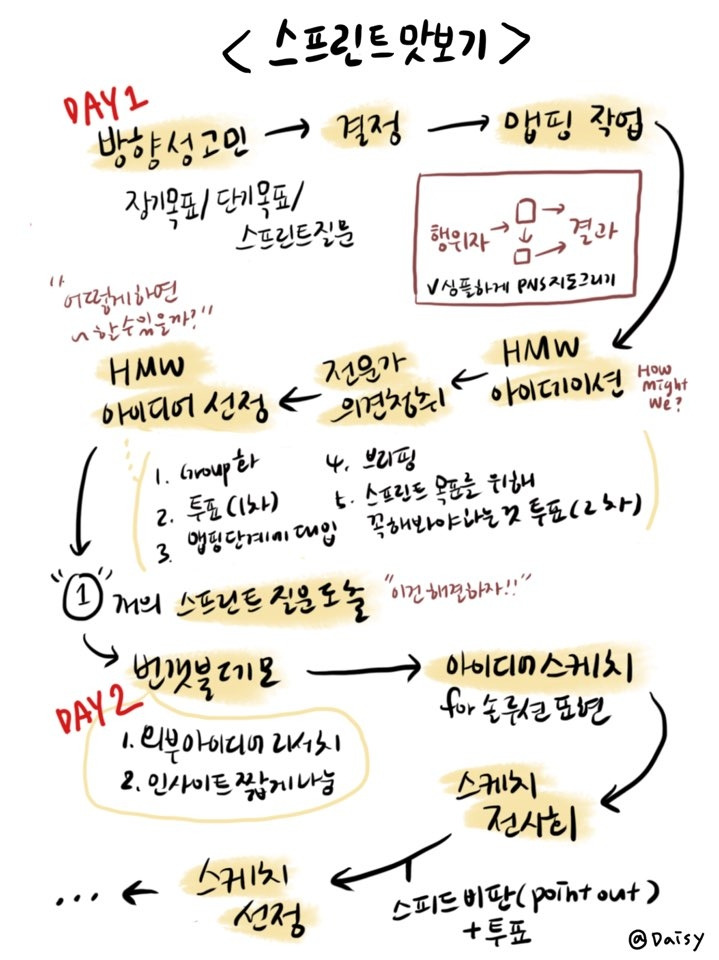 < 스프린트 맛보기 >
DAY 1
방향성고민 → 결정 → 맵핑 작업
장기목표/ 단기목표/
스프린트질문
행위자 → → 결과
✓심플하게 PNS지도그리기
"어떻게하면
~할수있을까?"
HMW
아이데이션
How
might
we?
전문가
의견청취
HMW
아이디어 선정
1. Group화
2. 투표(1차)
3. 맵핑단계에 대입
4. 브리핑
5. 스프린트 목표를 위해
꼭해봐야하는것 투표(2차)
"1" 개의 스프린트 질문도출 "이건해결하자!!"
DAY 2
번갯불데모 → 아이디어스케치
for 솔루션 표현
1. 외부아이디어 리서치
2. 인사이트 짧게나눔
스케치
전시회
스피드비판(point out)
+투표
스케치
선정
...
@Daisy